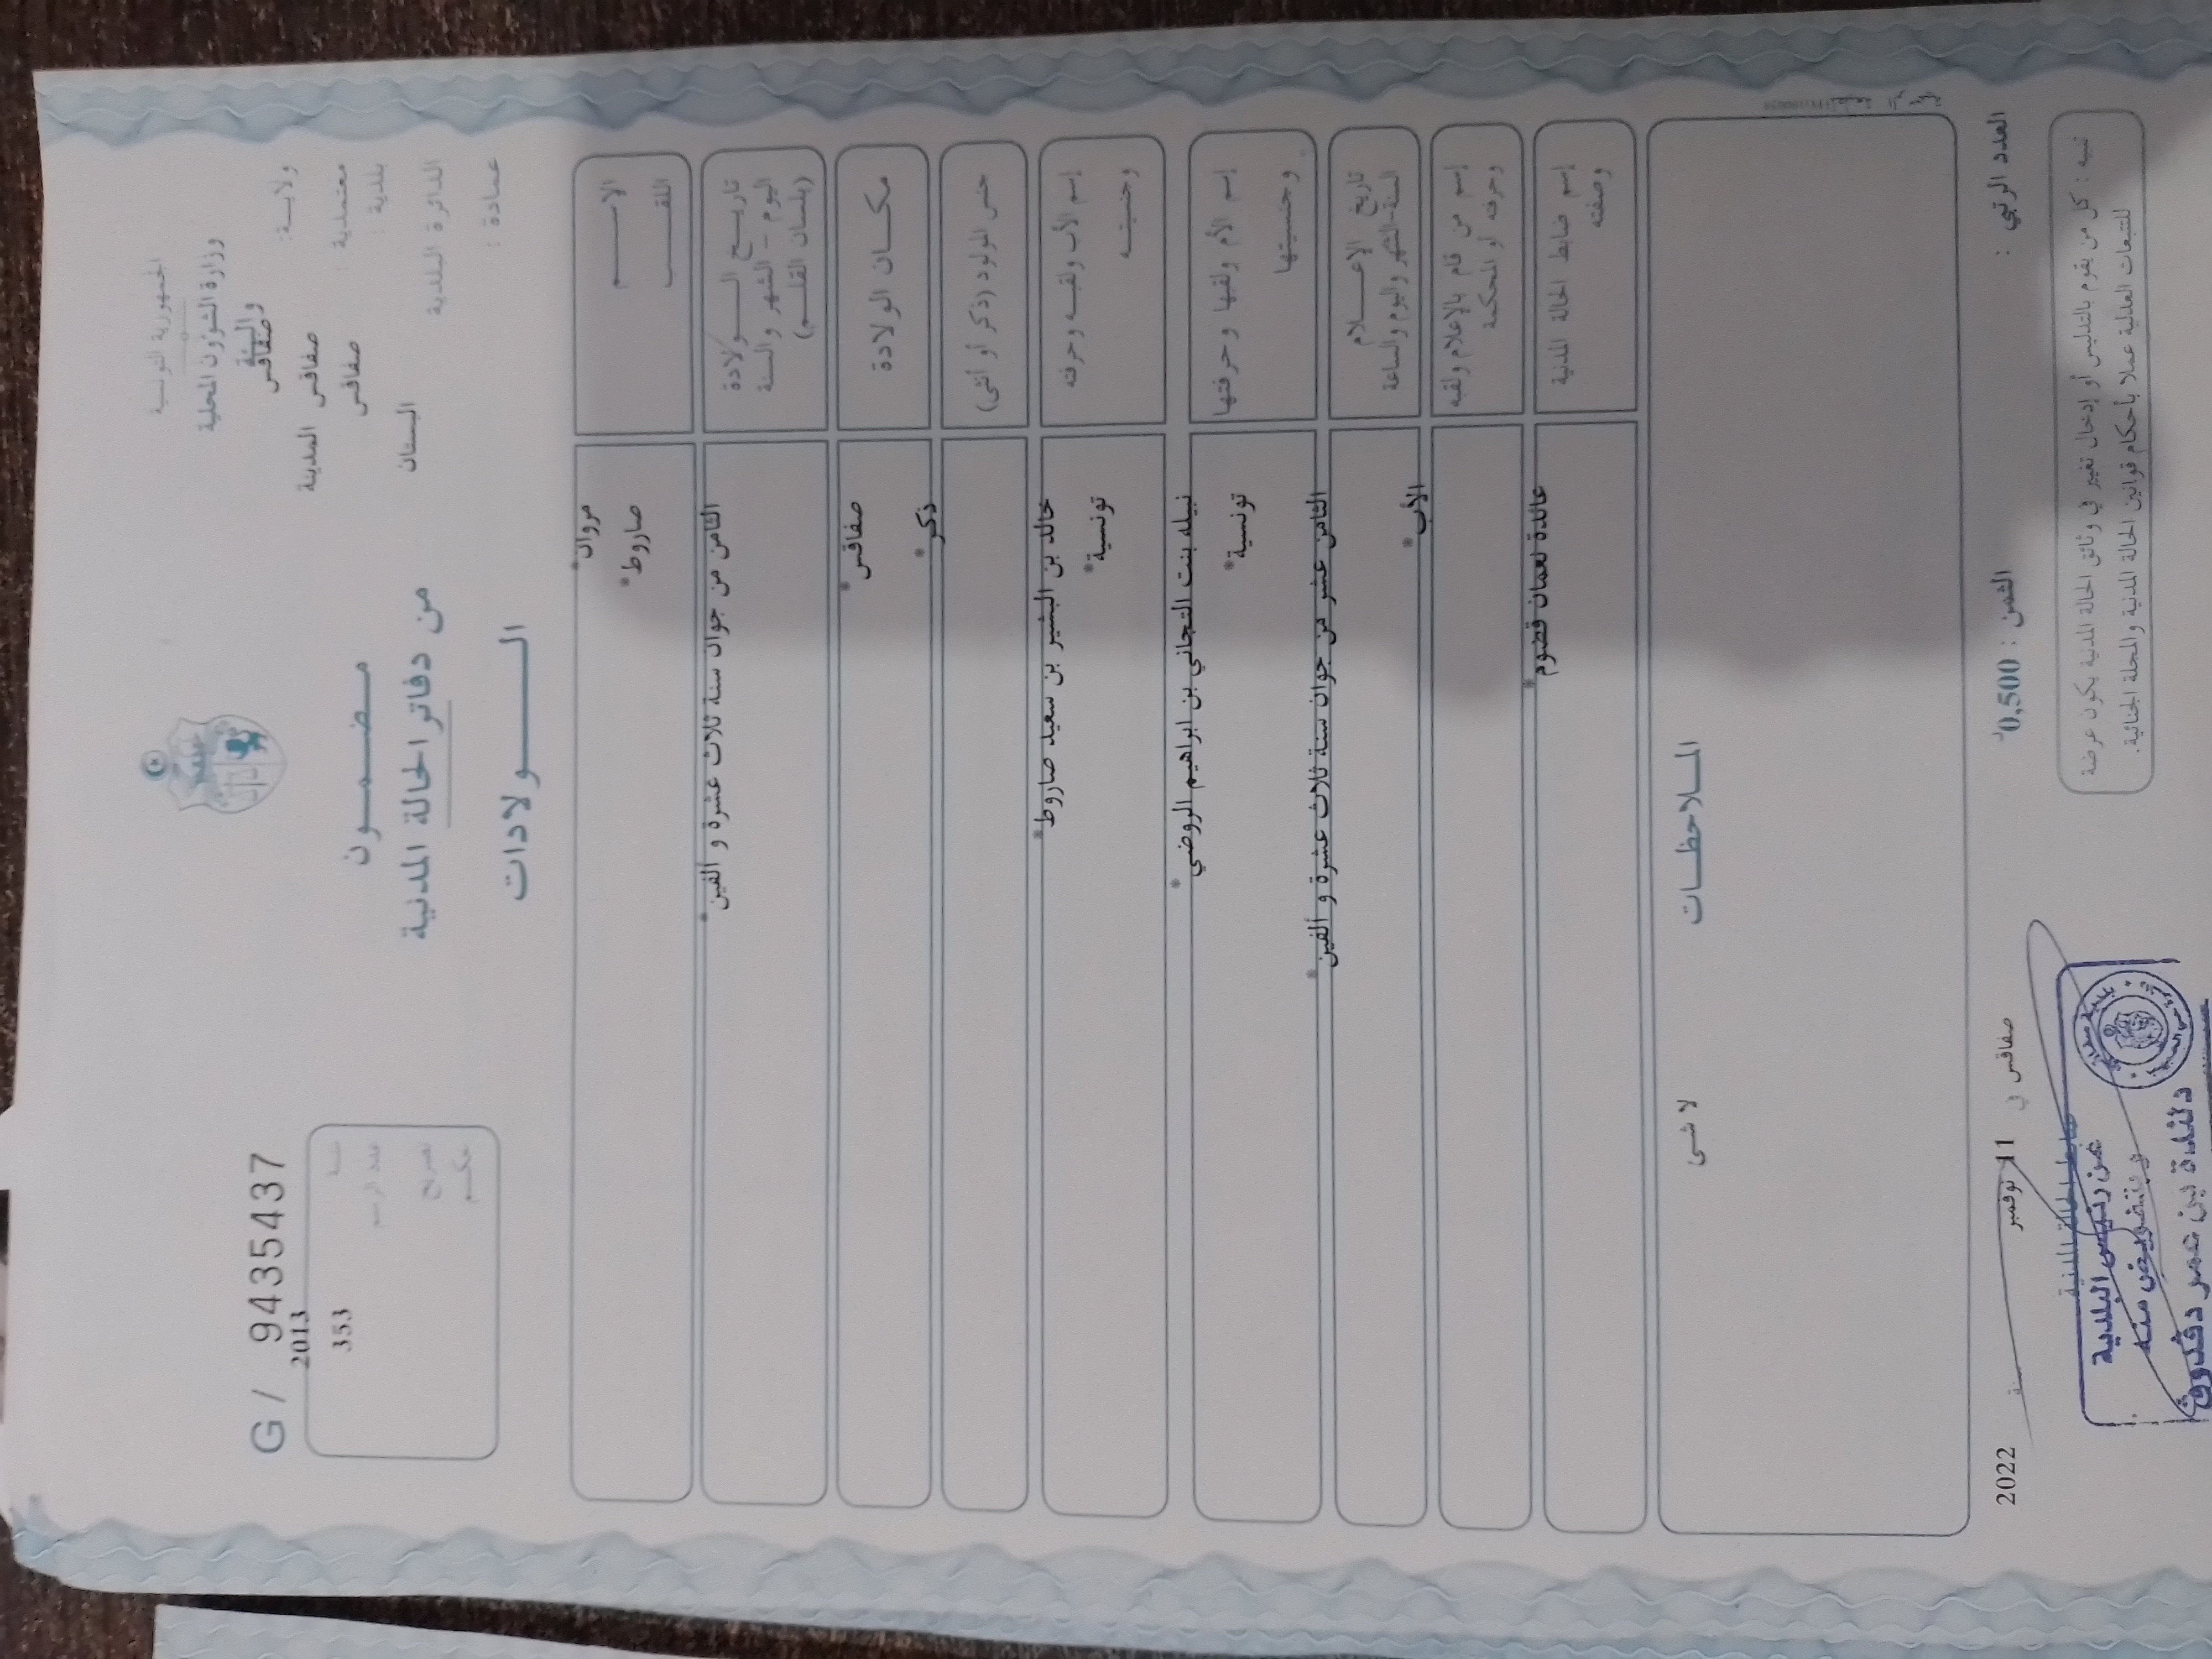 الجمهورية التونسية
وزارة الشؤون المحلية
والبيئة
ولاية: صفاقس
معتمدية : صفاقس المدينة
بلدية : صفاقس
الدائرة البلدية البستان
عمادة :
مضمون
من دفاتر الحالة المدنية
الولادات
G / 9435437
سنة 2013
عدد الرسم 353
تصريح
حكم
الاسم مروان*
اللقب صاروط*
تاريخ الولادة
اليوم - الشهر والسنة
(بلسان القلم)
الثامن من جوان سنة ثلاث عشرة و ألفين*
مكان الولادة صفاقس*
جنس المولود (ذكر أو أنثى) ذكر*
إسم الأب ولقبه وحرفته خالد بن البشير بن سعيد صاروط*
وجنسيته تونسية*
إسم الأم ولقبها وحرفتها نبيله بنت التجاني بن ابراهيم الروضي*
وجنسيتها تونسية*
تاريخ الإعلام
السنة-الشهر واليوم والساعة
الثامن عشر من جوان سنة ثلاث عشرة و ألفين*
إسم من قام بالإعلام ولقبه
وحرفته أو المحكمة
الأب*
إسم ضابط الحالة المدنية
وصفته
عائدة نعمان قضوم*
الملاحظات
لا شىء
العدد الرتبي :
الثمن : 0,500د
صفاقس في 11 نوفمبر سنة 2022
تنبيه : كل من يقوم بالتدليس أو إدخال تغيير في وثائق الحالة المدنية يكون عرضة
للتتبعات العدلية عملا بأحكام قوانين الحالة المدنية والمجلة الجنائية.
ضابط الحالة المدنية
عن رئيس البلدية
وبتفويض منه